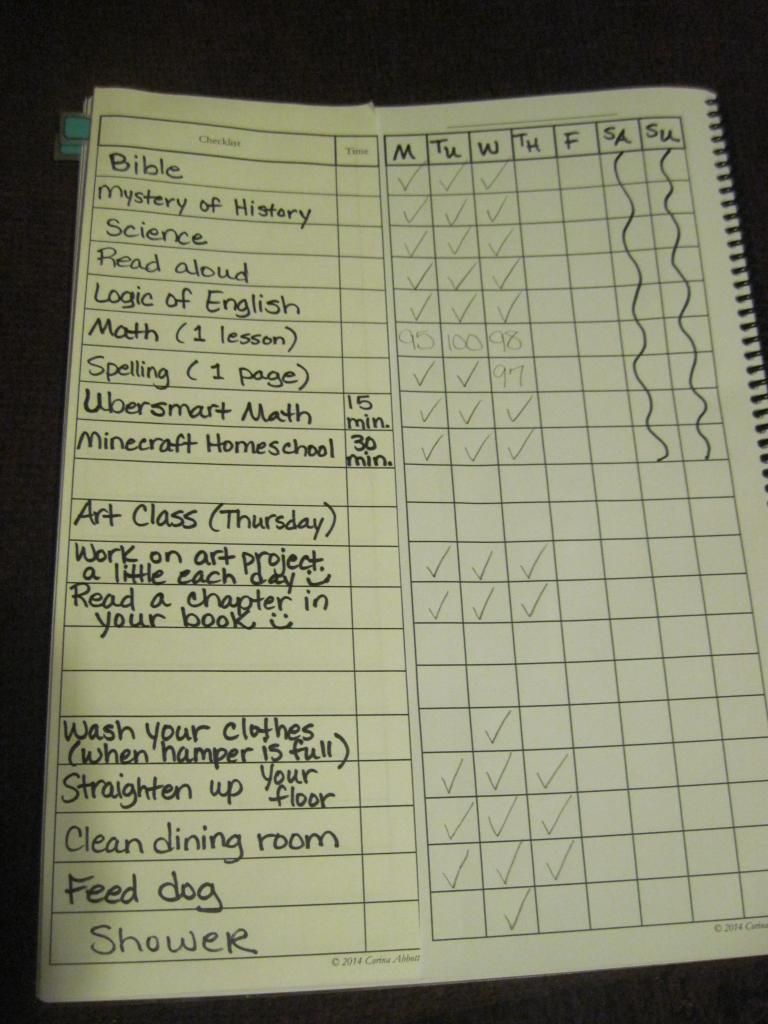 Checklist Time M TU W TH F SA SU
Bible ✓ ✓ ✓
Mystery of History ✓ ✓ ✓
Science ✓ ✓ ✓
Read aloud ✓ ✓ ✓
Logic of English ✓ ✓ ✓
Math (1 lesson) 95 100 98
Spelling (1 page) ✓ ✓ 97
Ubersmart Math 15 min. ✓ ✓ ✓
Minecraft Homeschool 30 min. ✓ ✓ ✓
Art Class (Thursday)
Work on art project
a little each day ✓ ✓ ✓
Read a chapter in
your book ✓ ✓ ✓
Wash your clothes
(when hamper is full) ✓
Straighten up your
floor ✓ ✓ ✓
Clean dining room ✓ ✓ ✓
Feed dog ✓ ✓ ✓
Shower ✓
© 2014 Corina Abbott
© 2014 Corina